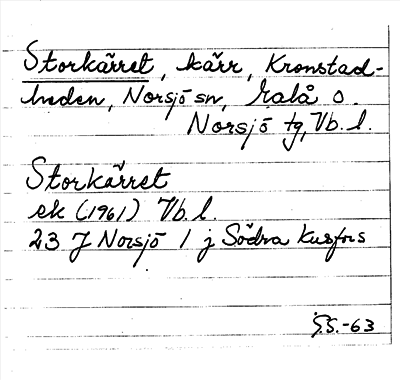 Storkärret, kärr, Kronstad-
heden, Norsjö sn, Malå o.
Norsjö tg, Vb. l.
Storkärret
ek (1961) Vb. l.
23 J Norsjö 1 j Södra Kusfors
S.S.-63